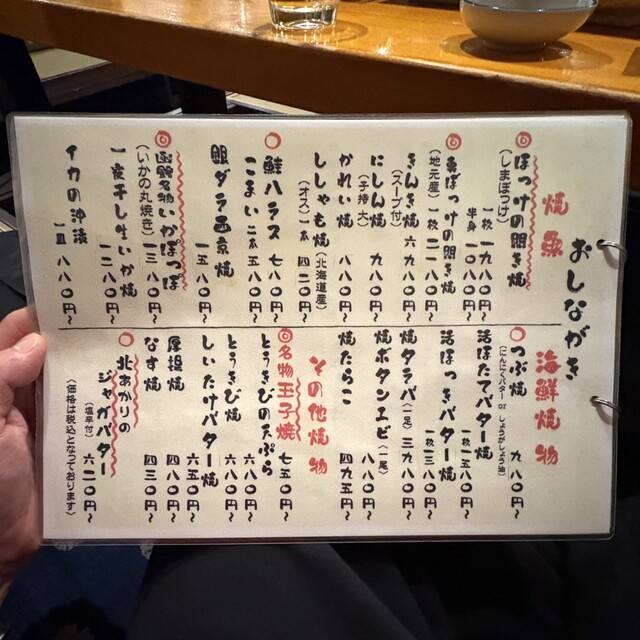 おしながき
焼魚
◎ほっけの開き焼
(しまほっけ)
一枚 一九八〇円〜
半身 一〇八〇円〜
◎真ほっけの開き焼
(地元産) 一枚 二一八〇円〜
きんき焼 六九八〇円〜
(スープ付)
にしん焼 九八〇円〜
(子持大)
かれい焼 八八〇円〜
ししゃも焼(北海道産)
(オス) 一本 四二〇円〜
○鮭ハラス 七八〇円〜
こまい 二本 五八〇円〜
銀ダラ西京焼
一五八〇円〜
◎函館名物いかぽっぽ
(いかの丸焼き) 一三八〇円〜
一夜干し生いか焼
一二八〇円〜
イカの沖漬
一皿 八八〇円〜
海鮮焼物
○つぶ焼 九八〇円〜
(にんにくバター or しょうがしょう油)
活ほたてバター焼
一枚 一五八〇円〜
活ほっきバター焼
一枚 一三八〇円〜
焼タラバ(一足) 三九八〇円〜
焼ボタンエビ(一尾)
八八〇円〜
焼たらこ 四九五円〜
その他焼物
◎名物玉子焼 七五〇円〜
とうきびの天ぷら
六八〇円〜
とうきび焼 六八〇円〜
しいたけバター焼
六五〇円〜
厚揚焼 四八〇円〜
なす焼 四三〇円〜
○北あかりの
ジャガバター
(塩辛付) 六二〇円〜
〈価格は税込となっております〉